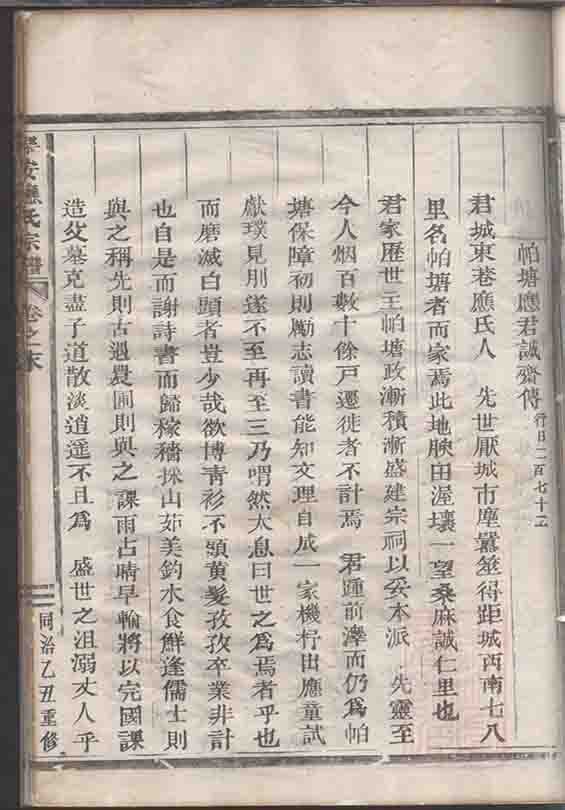 帕塘應君誠齋傳 行日二百七十二
君城東巷應氏人 先世厭城市塵囂筮得距城西南七八
里名帕塘者而家焉此地腴田渥壤一望桑麻誠仁里也
君家歷世王帕塘政漸積漸盛建宗祠以妥本派 先靈至
今人烟百數十餘戸遷徙者不計焉 君踵前澤而仍為帕
塘保障初則勵志讀書能知文理自成一家機杼由應童試
獻璞見刖遂不至再至三乃喟然太息曰世之為焉者乎也
而磨滅白頭者豈少哉欲博青衫不顧黄髮孜孜卒業非計
也自是而謝詩書而歸稼穡採山茹美釣水食鮮逢儒士則
與之稱先則古遇農圃則與之課雨占晴早輸將以完國課
造父墓克盡子道散淡逍遥不且為 盛世之沮溺丈人乎
安應氏宗譜 卷之末
同治乙丑重修